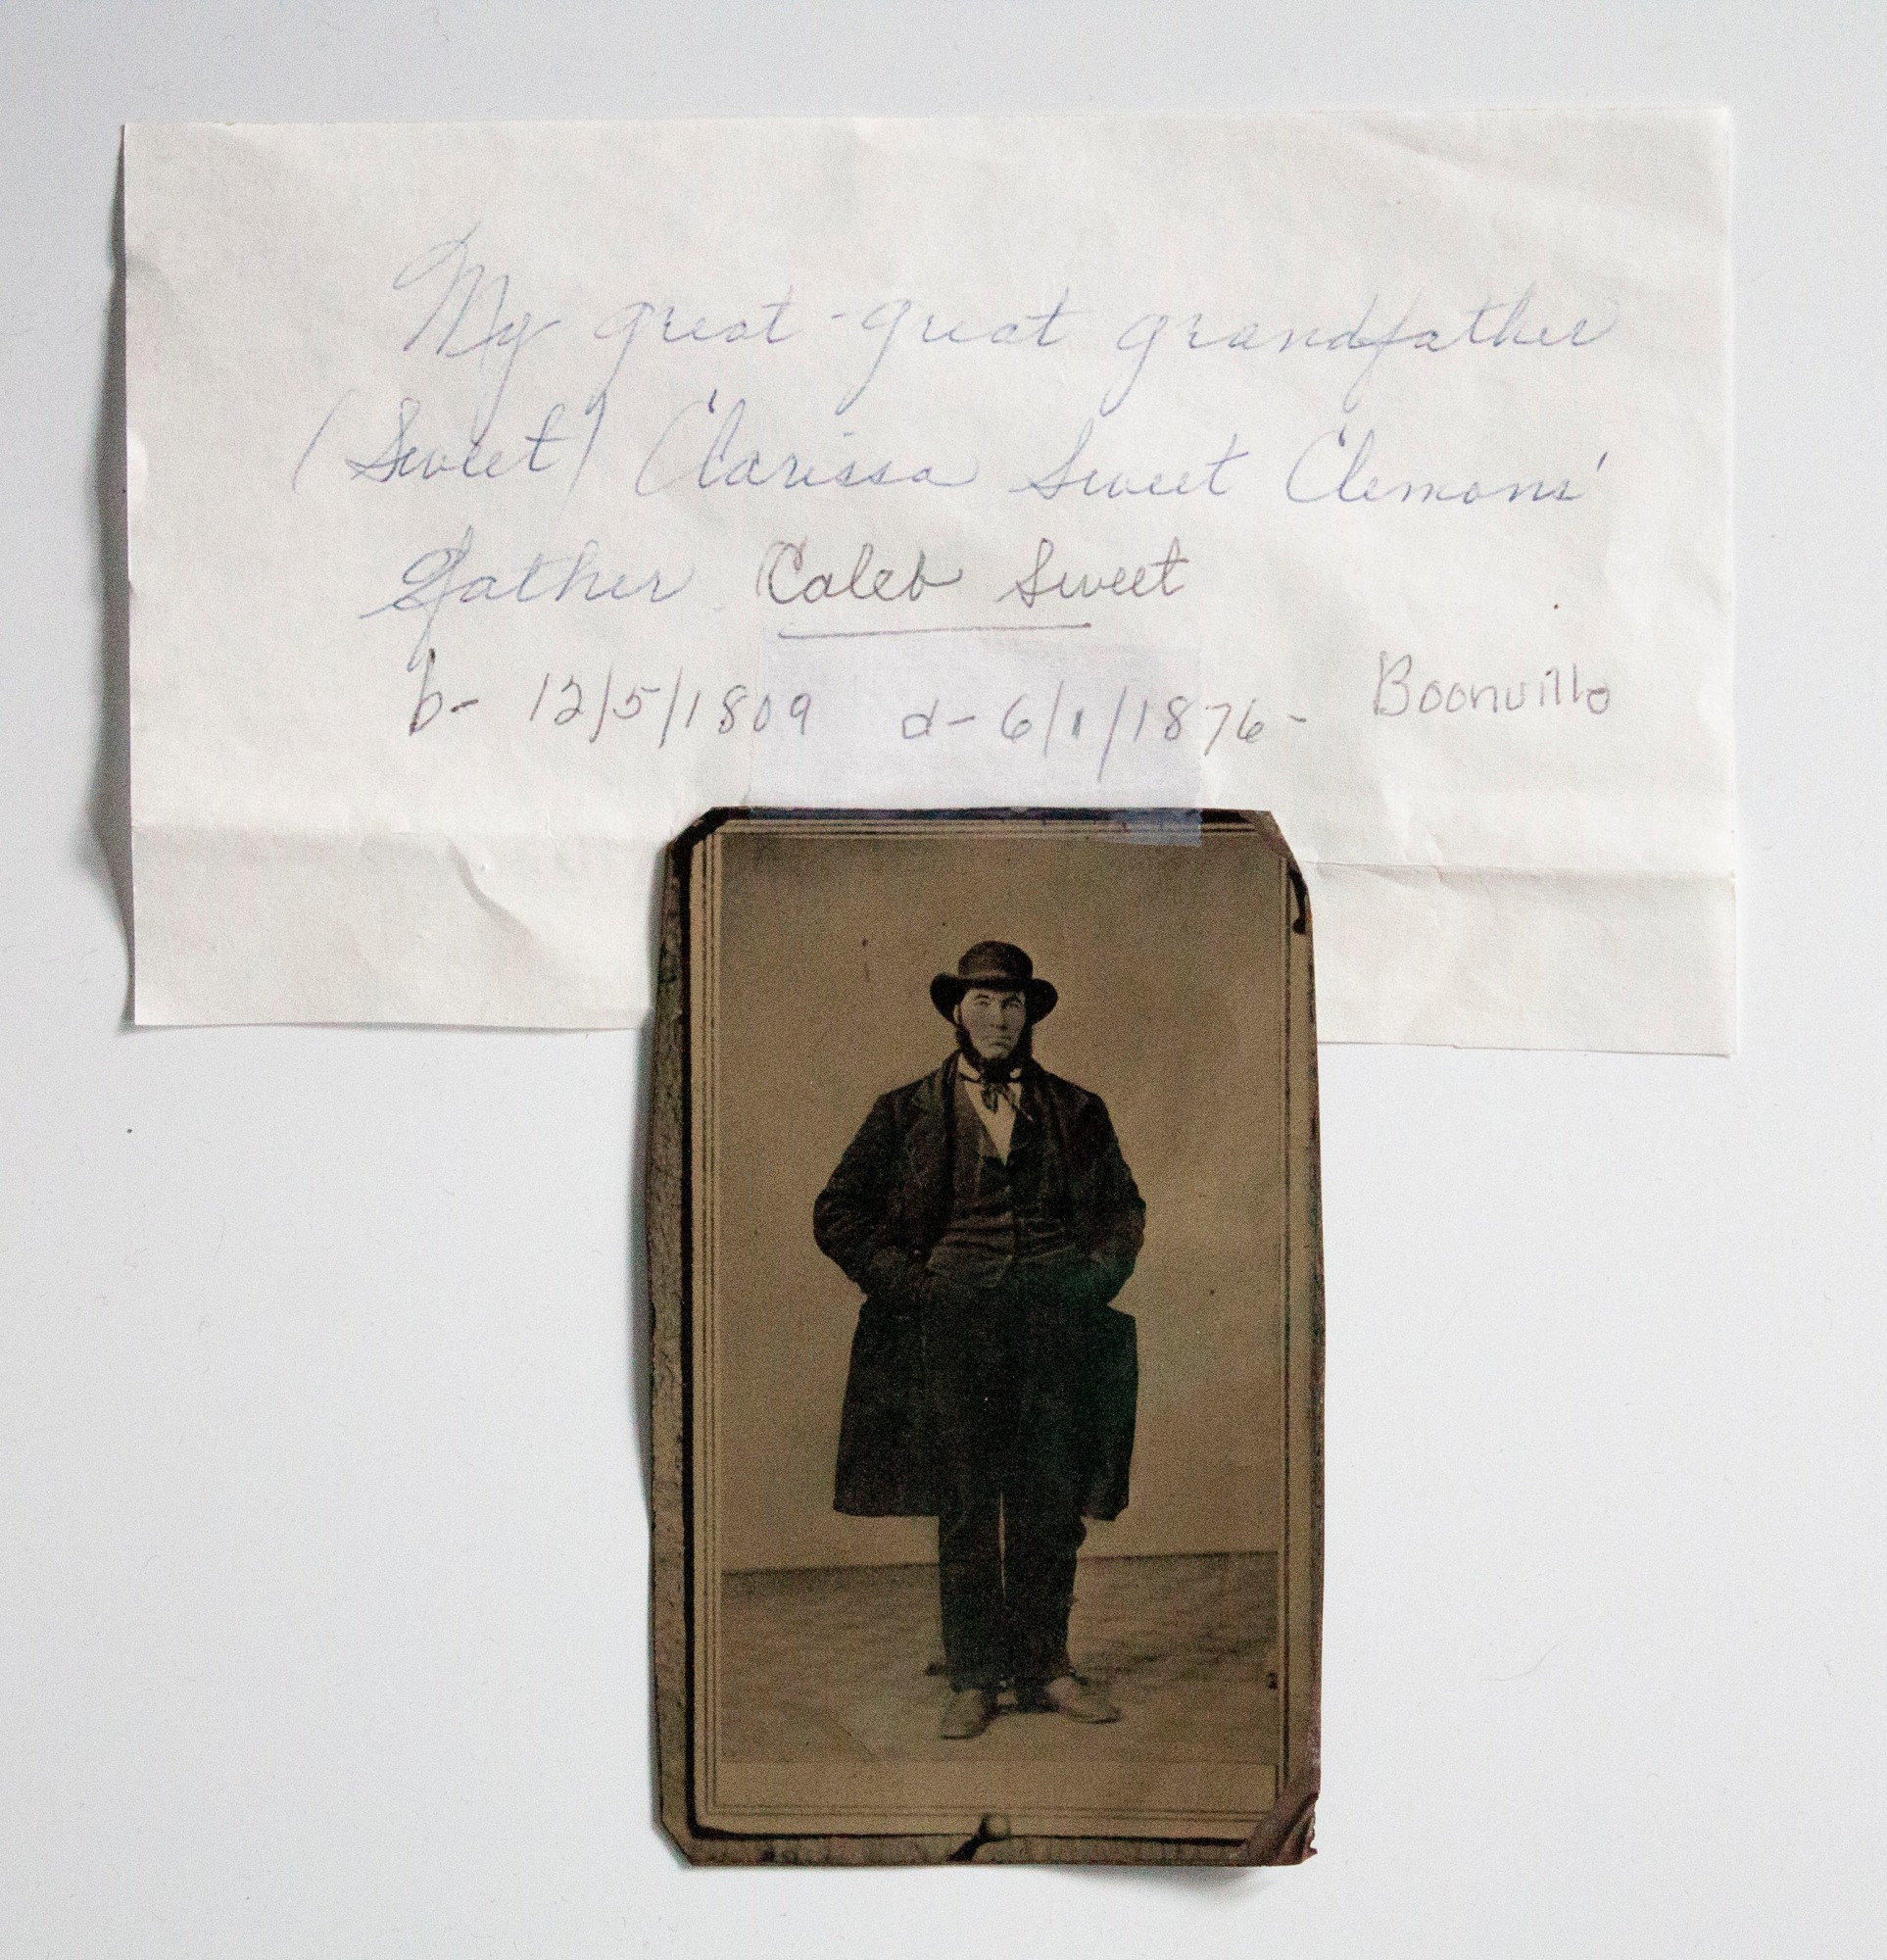 My great-great grandfather
(Sweet) Clarissa Sweet Clemons'
father Caleb Sweet
b- 12/5/1809 d- 6/1/1876- Boonville